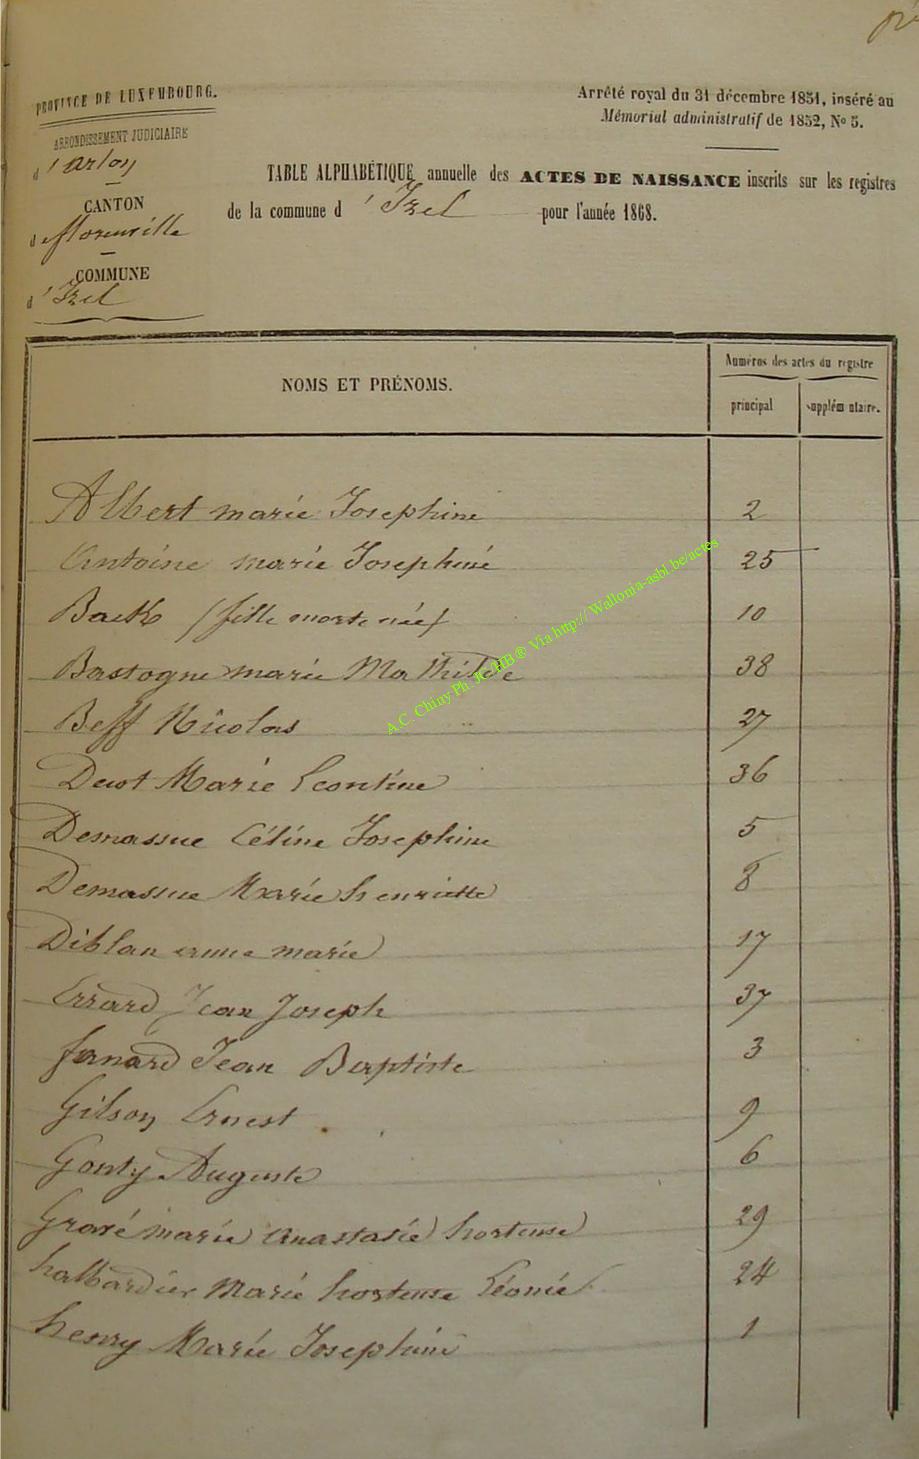 PROVINCE DE LUXEMBOURG.
ARRONDISSEMENT JUDICIAIRE
d'Arlon
CANTON
de florenville
COMMUNE
d'Izel
Arrêté royal du 31 décembre 1851, inséré au
Mémorial administratif de 1852, No 5.
TABLE ALPHABÉTIQUE annuelle des ACTES DE NAISSANCE inscrits sur les registres
de la commune d'Izel pour l'année 1868.
NOMS ET PRÉNOMS.
Numéros des actes du registre
principal
supplémentaire.
Albert marie Josephine 2
Antoine marie Josephine 25
Back (fille morte née) 10
Bastogne marie Mathilde 38
Beff Nicolas 27
Decot Marie Leontine 36
Demassue Céline Josephine 5
Demassue Marie henriette 8
Diblan anne marie 17
Errard Jean Joseph 37
fanard Jean Baptiste 3
Gilson Ernest 9
Gonty Auguste 6
Gravé marie Anastasie hortense 29
halbardier Marie hortense Léonie 24
henry Marie Josephine 1
A.C. Chiny Ph. JC HB ® Via http://Wallonia-asbl.be/actes